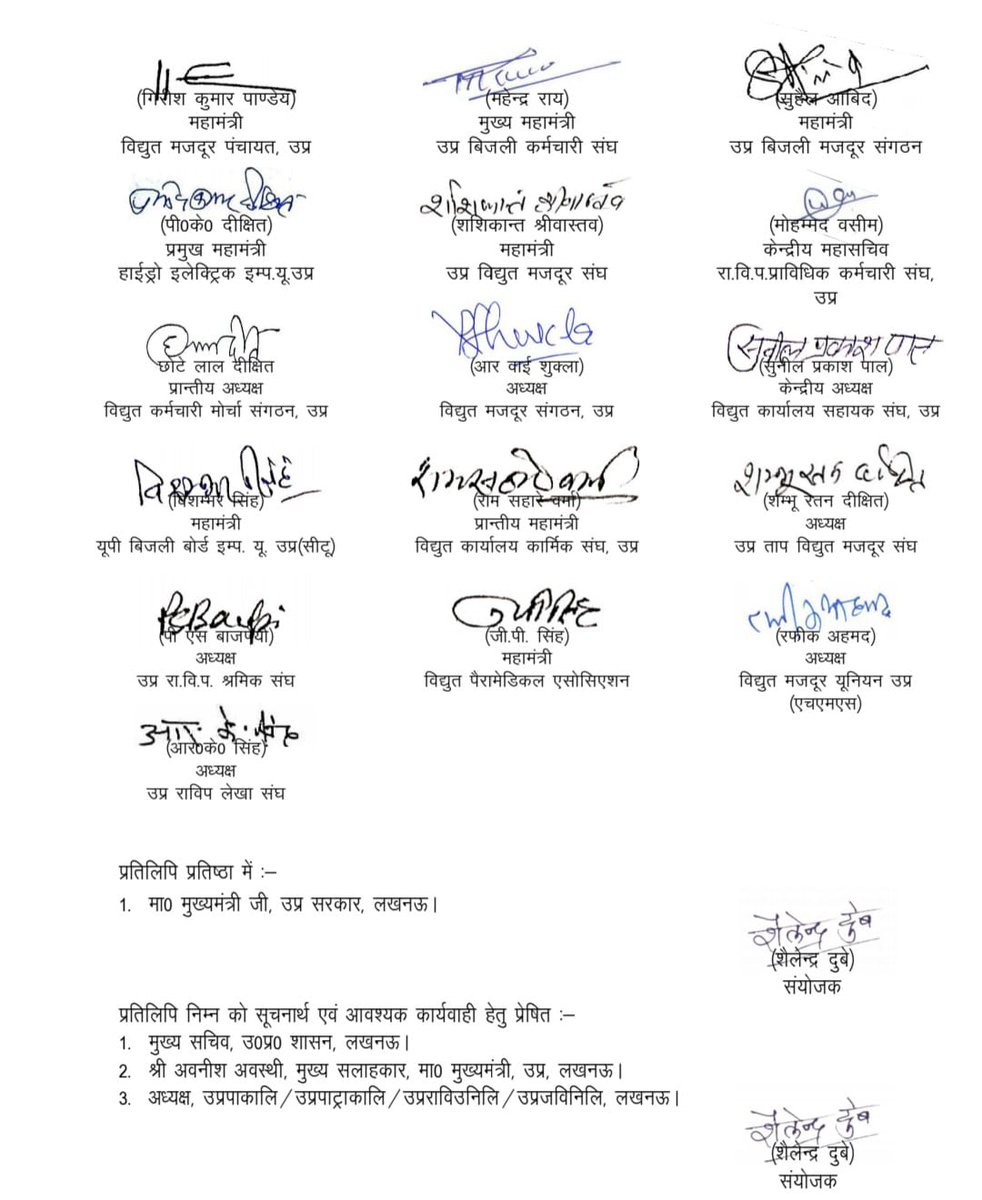 (गिरीश कुमार पाण्डेय)
महामंत्री
विद्युत मजदूर पंचायत, उप्र
(महेन्द्र राय)
मुख्य महामंत्री
उप्र बिजली कर्मचारी संघ
(सुहेल आबिद)
महामंत्री
उप्र बिजली मजदूर संगठन
(पी0के0 दीक्षित)
प्रमुख महामंत्री
हाईड्रो इलेक्ट्रिक इम्प.यू.उप्र
शशिकान्त श्रीवास्तव
(शशिकान्त श्रीवास्तव)
महामंत्री
उप्र विद्युत मजदूर संघ
(मोहम्मद वसीम)
केन्द्रीय महासचिव
रा.वि.प.प्राविधिक कर्मचारी संघ,
उप्र
छोटे लाल दीक्षित
प्रान्तीय अध्यक्ष
विद्युत कर्मचारी मोर्चा संगठन, उप्र
(आर वाई शुक्ला)
अध्यक्ष
विद्युत मजदूर संगठन, उप्र
सुनील प्रकाश पाल
(सुनील प्रकाश पाल)
केन्द्रीय अध्यक्ष
विद्युत कार्यालय सहायक संघ, उप्र
(विशम्भर सिंह)
महामंत्री
यूपी बिजली बोर्ड इम्प. यू. उप्र(सीटू)
(राम सहारे वर्मा)
प्रान्तीय महामंत्री
विद्युत कार्यालय कार्मिक संघ, उप्र
(शम्भू रतन दीक्षित)
अध्यक्ष
उप्र ताप विद्युत मजदूर संघ
(पी एस बाजपेयी)
अध्यक्ष
उप्र रा.वि.प. श्रमिक संघ
(जी.पी. सिंह)
महामंत्री
विद्युत पैरामेडिकल एसोसिएशन
(रफीक अहमद)
अध्यक्ष
विद्युत मजदूर यूनियन उप्र
(एचएमएस)
(आर0के0 सिंह)
अध्यक्ष
उप्र राविप लेखा संघ
प्रतिलिपि प्रतिष्ठा में :–
1. मा0 मुख्यमंत्री जी, उप्र सरकार, लखनऊ।
शैलेन्द्र दुबे
(शैलेन्द्र दुबे)
संयोजक
प्रतिलिपि निम्न को सूचनार्थ एवं आवश्यक कार्यवाही हेतु प्रेषित :–
1. मुख्य सचिव, उ0प्र0 शासन, लखनऊ।
2. श्री अवनीश अवस्थी, मुख्य सलाहकार, मा0 मुख्यमंत्री, उप्र, लखनऊ।
3. अध्यक्ष, उप्रपाकालि/उप्रपाट्राकालि/उप्रराविउनिलि/उप्रजविनिलि, लखनऊ।
शैलेन्द्र दुबे
(शैलेन्द्र दुबे)
संयोजक